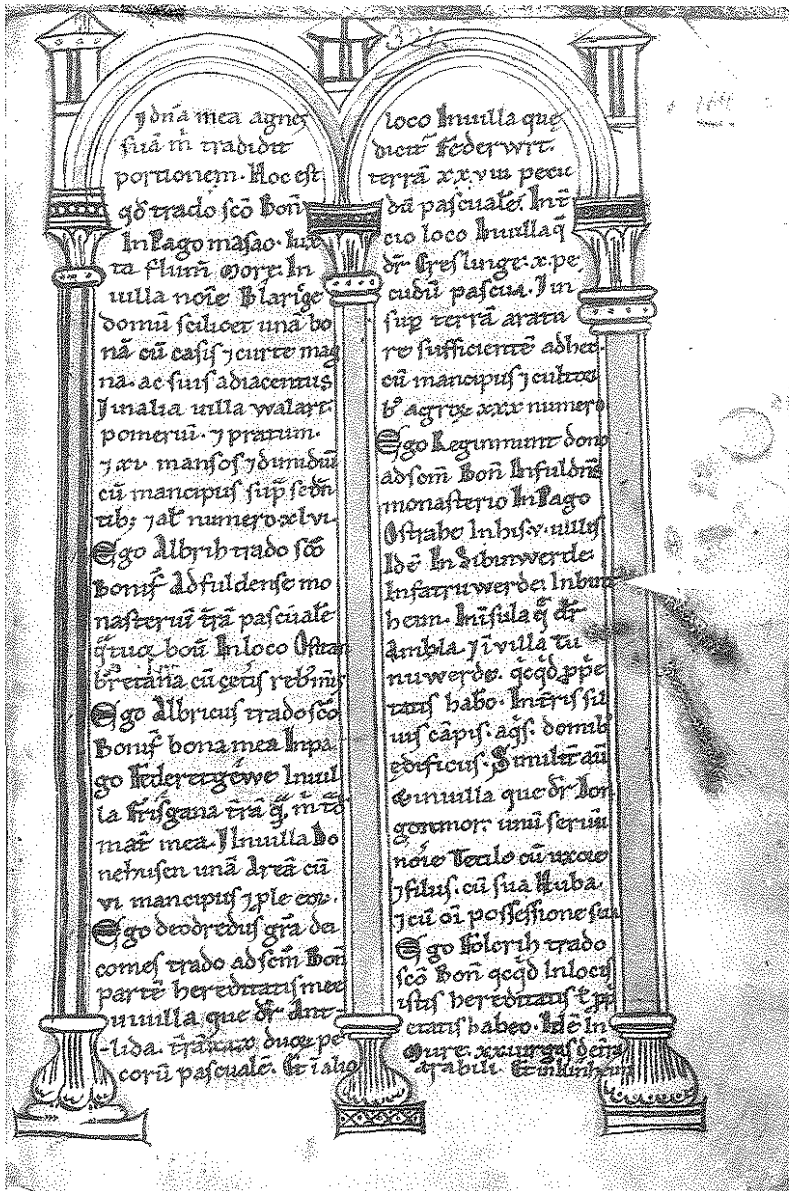 ⁊ dn̄a mea agnes
suā m̄ tradidit
portionem. Hoc est
qd̄ trado sc̄o Bon̄
In Pago masao. Iux
ta flum̄ More. In
uilla no͞ie Blarige
domū scilicet unā bo
nā cū casis ⁊ curte mag
na. ac suis adiacentiis
⁊ in alia uilla walart.
pomeriū. ⁊ pratum.
⁊ xi. mansos ⁊ dimidiū
cū mancipiis sup̄ sedn̄
tib; ⁊ al̄ numero xlvi.
Ego Albrih trado sc̄o
Bonif̄ Ad fuldense mo
nasteriū t̄rā pascualē
boū In loco
cū cet̄is
Ego Albricus trado sc̄o
Bonif̄ bona mea In pa
go Federetgewe In uil
la Frisgana t̄rā q̄
mat̄ mea. ⁊ In uilla Ho
nehusen unā Areā cū
vi mancipiis ⁊
Ego deodredus gr̄a dei
comes trado ad sc̄m Bon̄
partē hereditatis mee
in uilla que dr̄ Ant
lida. t̄rā xxx duoꝝ pe
corū pascualē. Et ī alio
loco In uilla que
dicit̄ Federwrt.
terrā xxviii pecu
dū pascualē. In t̄
cio loco In uilla q̄
dr̄ Greslinge. x. pe
cudū pascua. ⁊ in
sup̄ terrā aratu
re sufficientē ad hec.
cū mancipiis ⁊ cultor
ib᷒ agri xxx numero
Ego Reginmunt dono
ad sc̄m Bon̄ In fuldn̄si
monasterio In Pago
Ostrahe In his. v. uillis
Idē In Bibunwerde.
In fatruwerde. In bunt
heim. In īsula q̄ dr̄
Ambla. ⁊ ī villa tu
nuwerde. qcqd̄ p̄p̄e
tatis habo. In t̄ris sil
uis cāpis. aq̄s. domib᷒
edificiis. Similit̄ aū
⁊ in uilla que dr̄ Bon
gonmor. unū seruū
no͞ie Tetilo cū uxore
⁊ filiis. cū sua Huba.
⁊ cū o͞i possessione sua
Ego Folcrih trado
sc̄o Bon̄ qcqd̄ In locis
istis hereditatis ł p̄p̄
etatis habeo. Idē In
Mure. xx iurgis
arabili. Et in